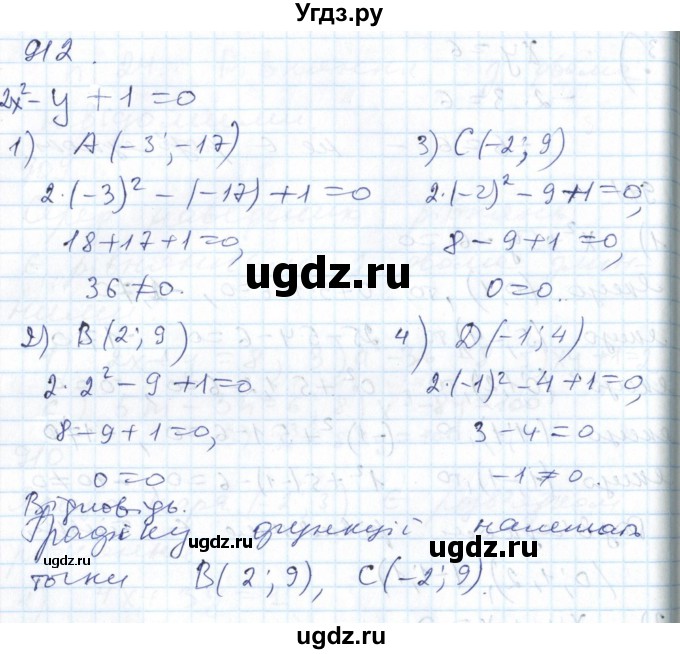 Угдз.ру
912.
2x² - y + 1 = 0
1) A(-3; -17)
2·(-3)² - (-17) + 1 = 0
18 + 17 + 1 = 0,
36 ≠ 0.
2) B(2; 9)
2·2² - 9 + 1 = 0
8 - 9 + 1 = 0,
0 = 0
3) C(-2; 9)
2·(-2)² - 9 + 1 = 0,
8 - 9 + 1 = 0,
0 = 0.
4) D(-1; 4)
2·(-1)² - 4 + 1 = 0,
3 - 4 = 0
-1 ≠ 0.
Відповідь.
Графіку функції належать
точки B(2; 9), C(-2; 9).
ugdz.ru
ugdz.ru
ugdz.ru
ugdz.ru
ugdz.ru